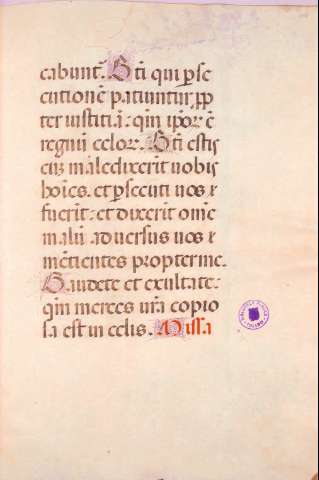 cabunt᷑. Bt̄i qui ꝑse
cutionē patiuntur, ꝓp
ter iustitiā: qm̄ ip̄or ē
regnū celor. Bt̄i estis
cū maledixerit uobis
hoīes. et ꝑsecuti uos
fuerīt: et dixerit om̄e
malū aduersus uos
mētientes propter me.
Gaudete et exultate:
qm̄ merces ur̄a copio
sa est in celis. Missa